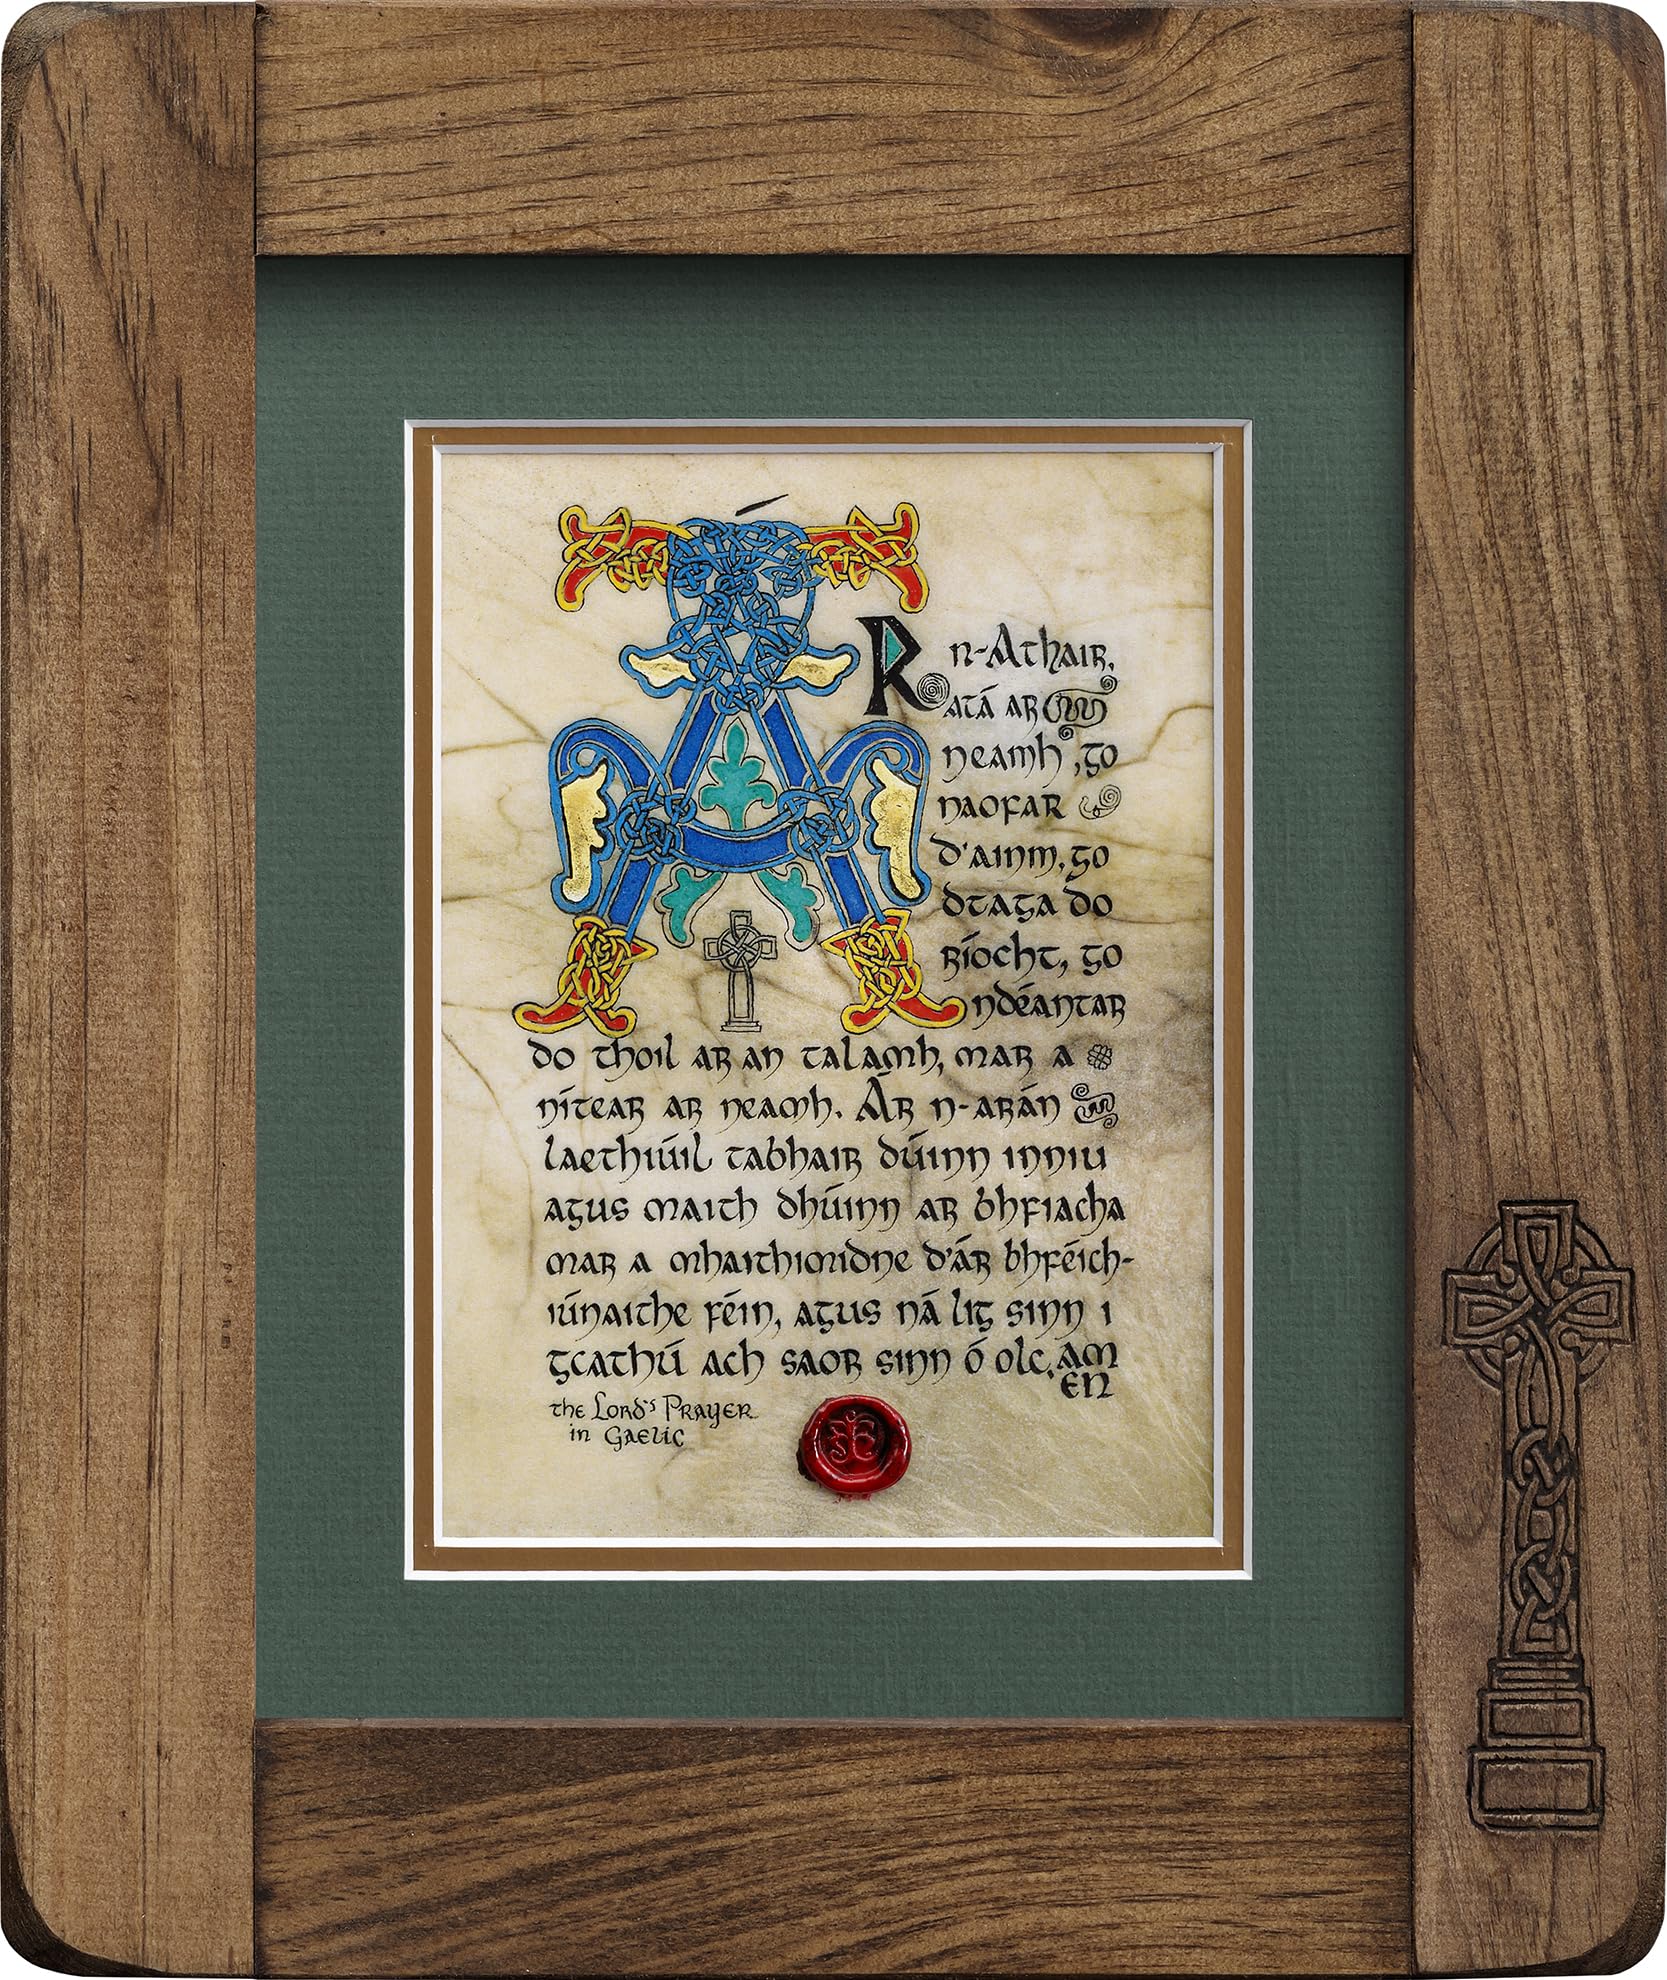 ÁR n-Athair,
atá ar
neamh, go
naofar
d'ainm, go
dtaga do
ríocht, go
ndéantar
do thoil ar an talamh, mar a
nítear ar neamh. Ár n-arán
laethiúil tabhair dúinn inniu
agus maith dhúinn ar bhfiacha
mar a mhaithimidne d'ár bhféich-
iúnaithe féin, agus ná lig sinn i
gcathú ach saor sinn ó olc. AM
EN
the Lord's Prayer
in Gaelic